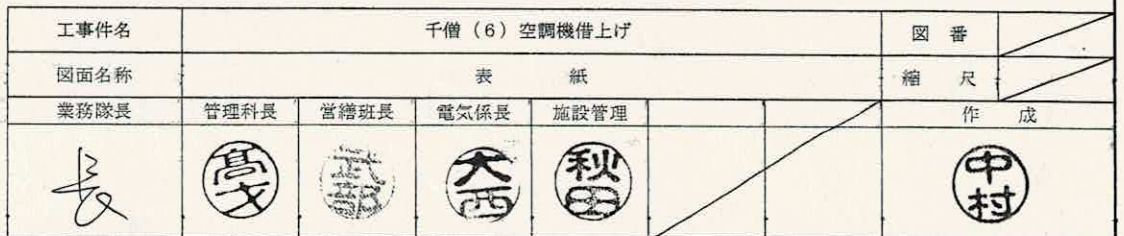 工事件名 千僧（6）空調機借上げ 図番
図面名称 表紙 縮尺
業務隊長 管理科長 営繕班長 電気係長 施設管理 作成
長 武部 大西 秋田 中村